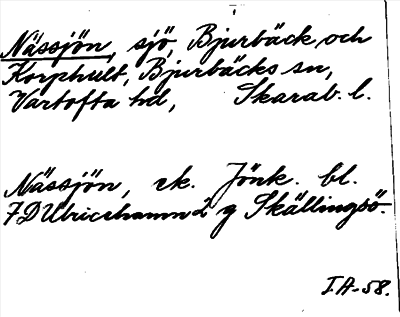 Nässjön, sjö, Bjurbäck och
Korphult, Bjurbäcks sn,
Vartofta hd, Skarab. l.
Nässjön, ek. Jönk. bl.
7D Ulricehamn 2 g Skällingsö.
IA-58.